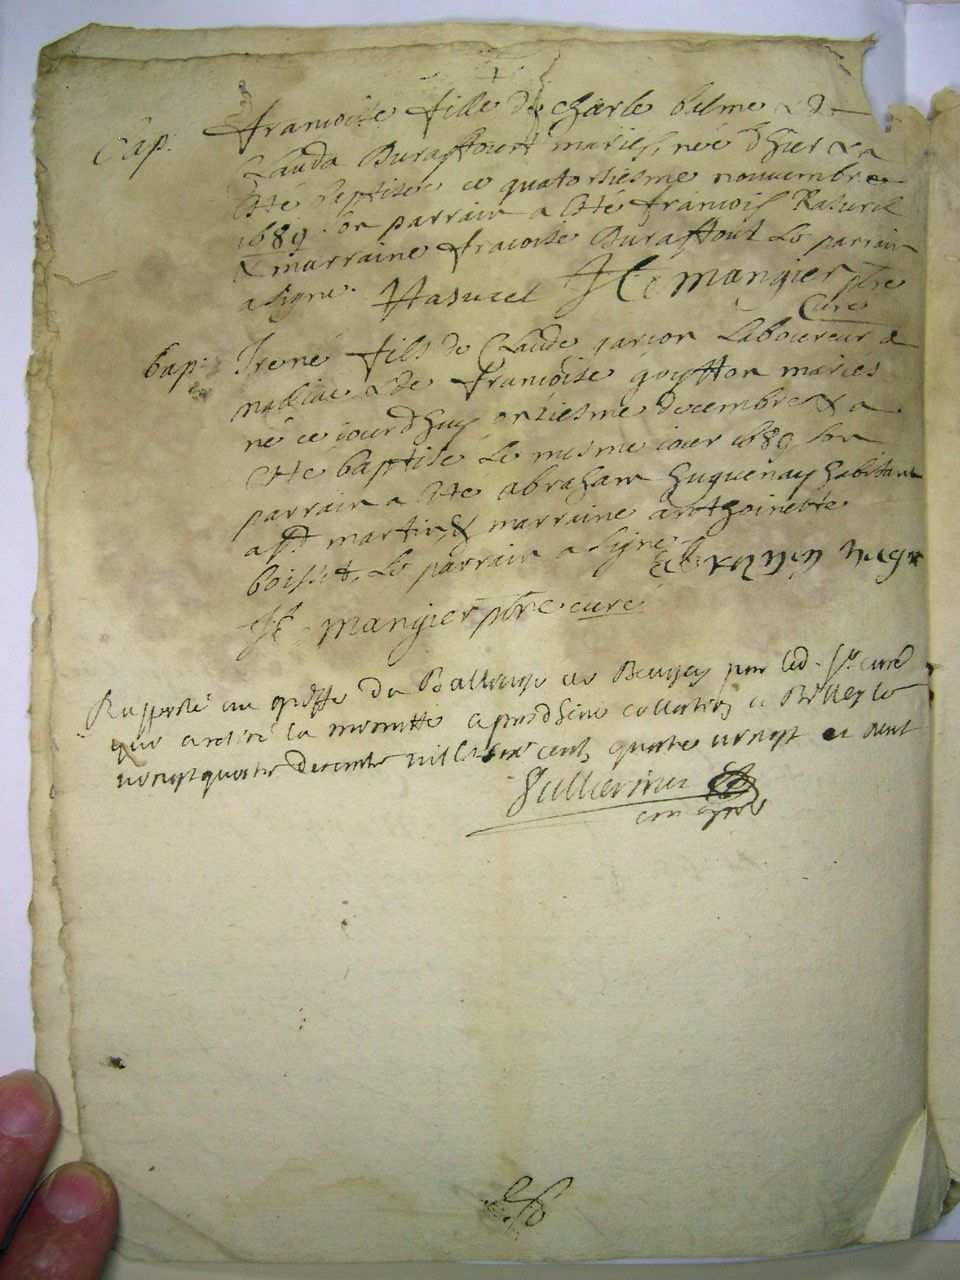 Bap. francoise fille de charle belme & de
Clauda Duraffourt mariés, née d'hier & a
esté baptisée ce quatorsiesme nouuembre
1689. son parrain a esté francois Rasurel
& marraine francoise Duraffout le parrain
a signé. Rasurel Mangier pbre
Curé
bap. Irené fils de Claude garçon Laboureur a
& de francoise gouffon mariés
né ce iourdhuy onsiesme decembre & a
esté baptisé le mesme iour 1689 son
parrain a esté abraham huguenay habitant
a St martin, & marraine anthoinette
boisset, le parrain a signé
Mangier pbre curé
Rapporté au greffe du Balliage de Beugey par led. Sr curé
qui a retiré la minutte apres dhüe collation a Belley le
vingt quatre decembre mil six cent quatre vingt et neuf
Cullierinier